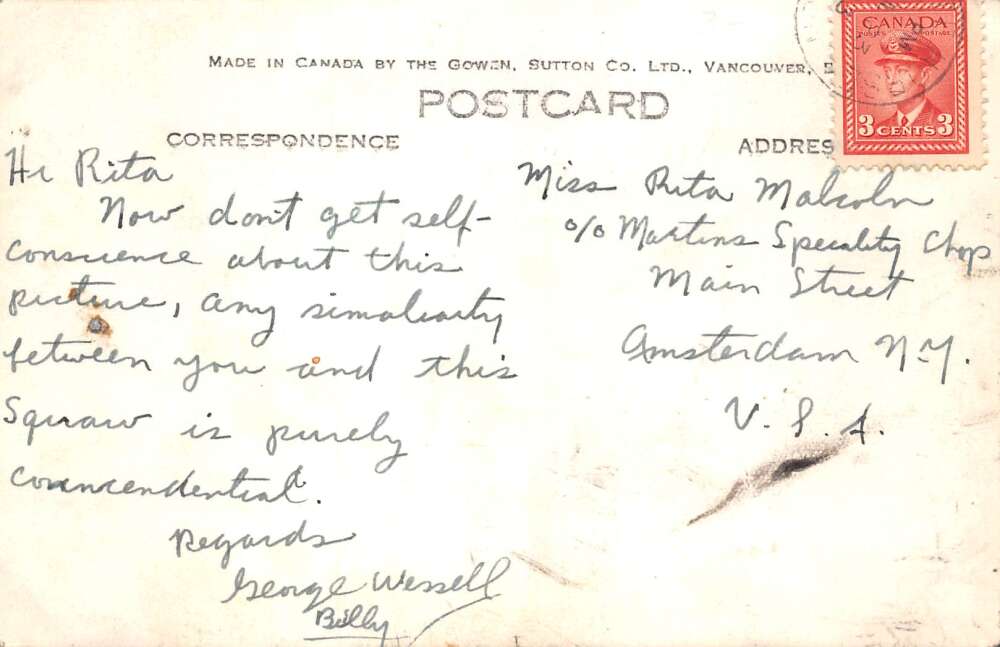 CANADA
POSTES POSTAGE
3 CENTS 3
MADE IN CANADA BY THE GOWEN, SUTTON CO. LTD., VANCOUVER, B
POSTCARD
CORRESPONDENCE
ADDRES
Hi Rita
Now dont get self-
conscience about this
picture, any simaliarity
between you and this
Squaw is purely
Regards
George Wessell
Billy
Miss Rita Malcolm
c/o Martins Speciality Chop
Main Street
Amsterdam N.Y.
U.S.A.